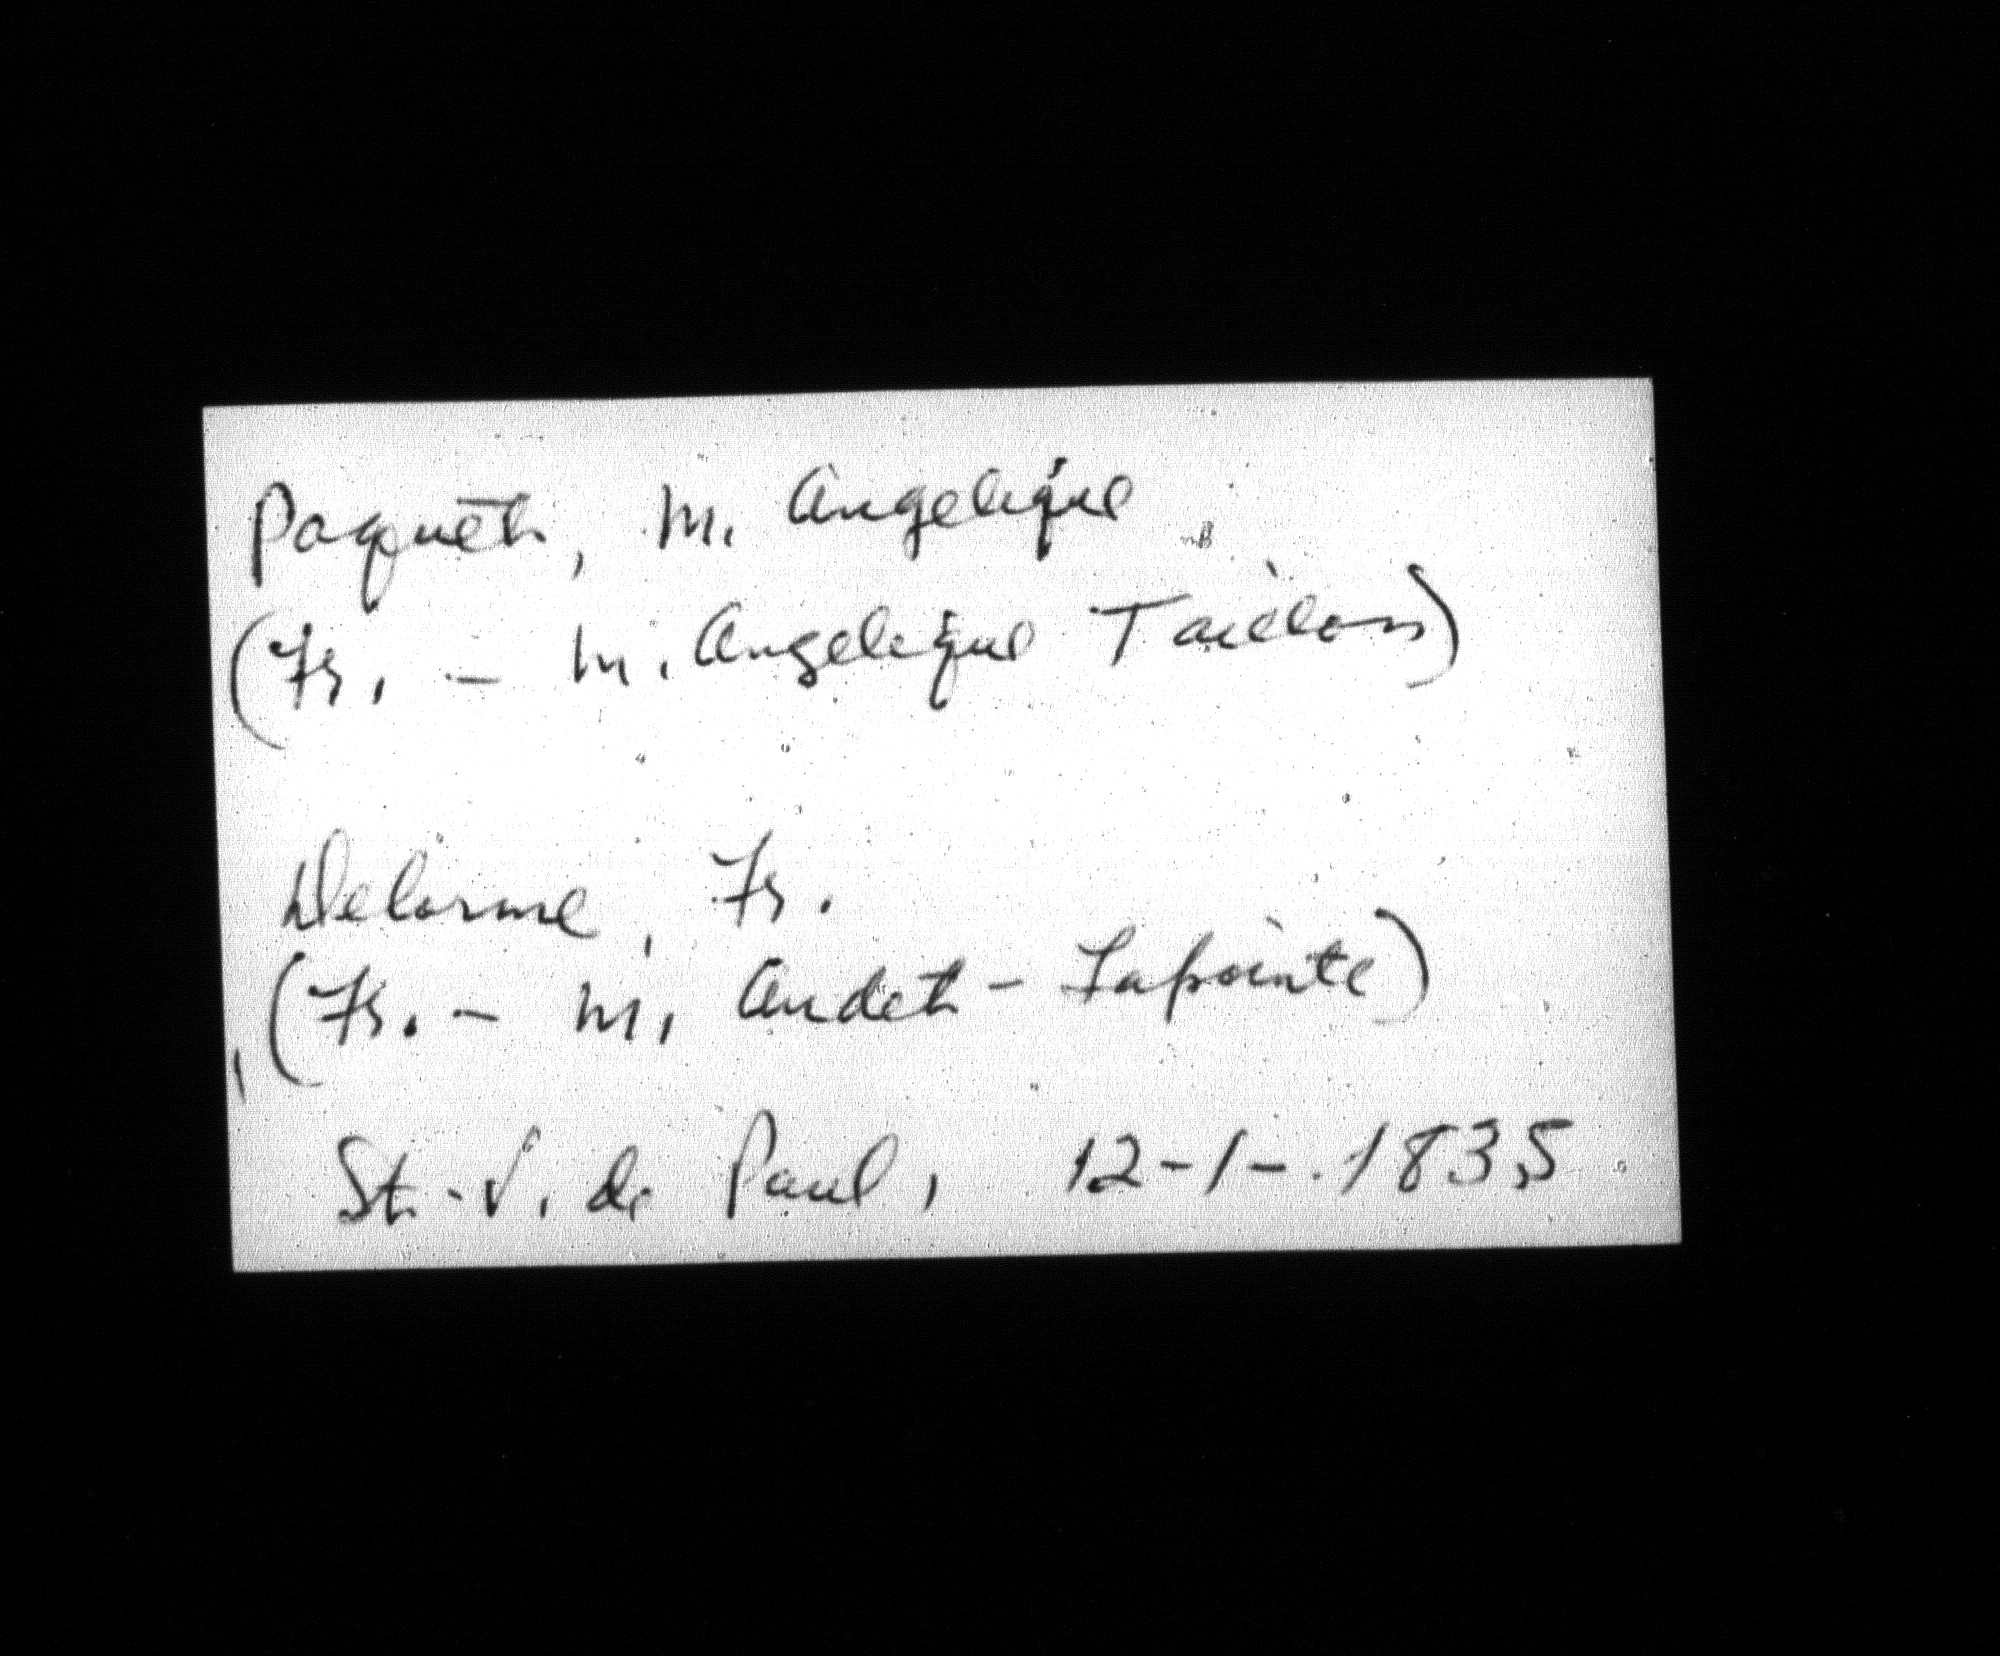 Paquet, M. Angelique
(Fr. - M. Angelique Taillon)
Delorme, Fr.
(Fr. - M. Audet - Lapointe)
St. V. de Paul, 12-1-1835